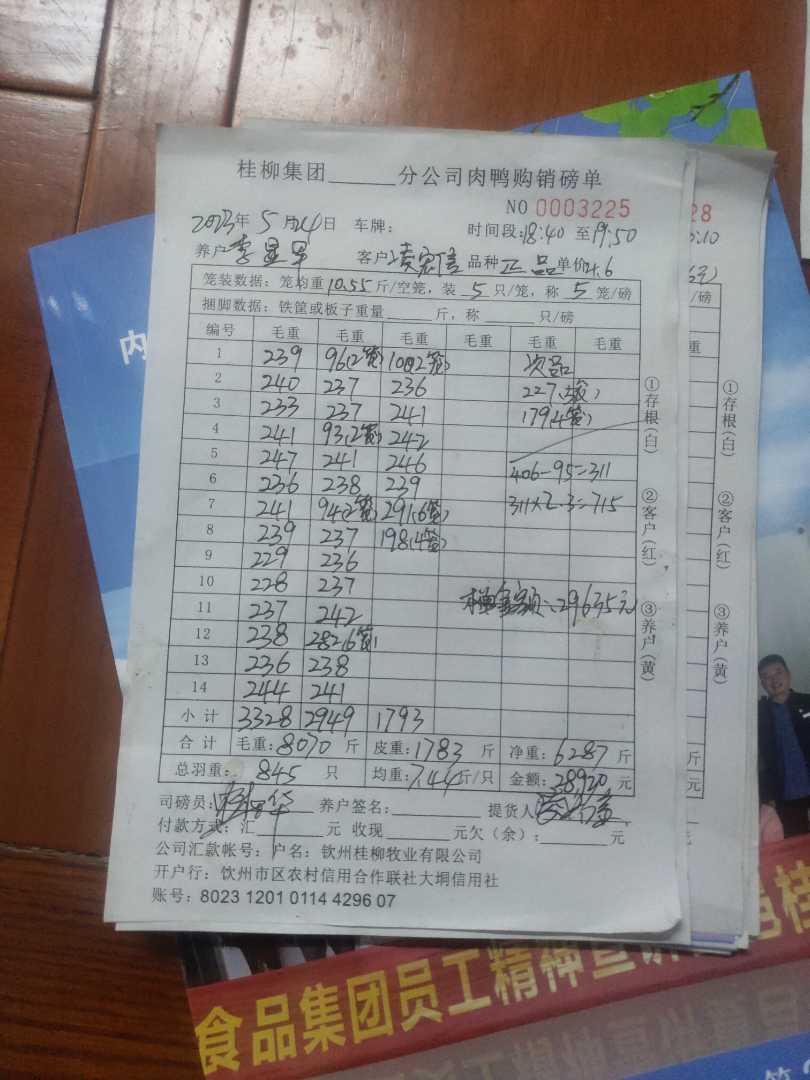 桂柳集团______分公司肉鸭购销磅单
NO 0003225
2023年5月24日 车牌: 时间段:18:40 至19:50
养户 客户: 品种 正品 单价4.6
笼装数据: 笼均重10.55斤/空笼, 装 5 只/笼, 称 5 笼/磅
捆脚数据: 铁筐或板子重量______斤, 称______只/磅
编号 毛重 毛重 毛重 毛重 毛重 毛重
1 239 96(2笼) 100(2笼) 次品
2 240 237 236 227(5笼)
3 233 237 241 179(4笼)
4 241 93(2笼) 242
5 247 241 246 406-95=311
6 236 238 239
7 241 94(2笼) 291(6笼) 311×2.3=715
8 239 237 198(4笼)
9 229 236
10 228 237
11 237 242 29635元
12 238 282(6笼)
13 236 238
14 244 241
小计 3328 2949 1793
合计 毛重:8070斤 皮重:1783斤 净重:6287斤
总羽重: 845 只 均重:7.44斤/只 金额:28920元
司磅员: 养户签名:______ 提货人
付款方式: 汇______元 收现______元欠(余):______元
公司汇款帐号: 户名: 钦州桂柳牧业有限公司
开户行: 钦州市区农村信用合作联社大垌信用社
账号: 8023 1201 0114 4296 07
①存根(白)
②客户(红)
③养户(黄)
28
/磅
重
①存根(白)
②客户(红)
③养户(黄)
元
元
内
食品集团员工精神